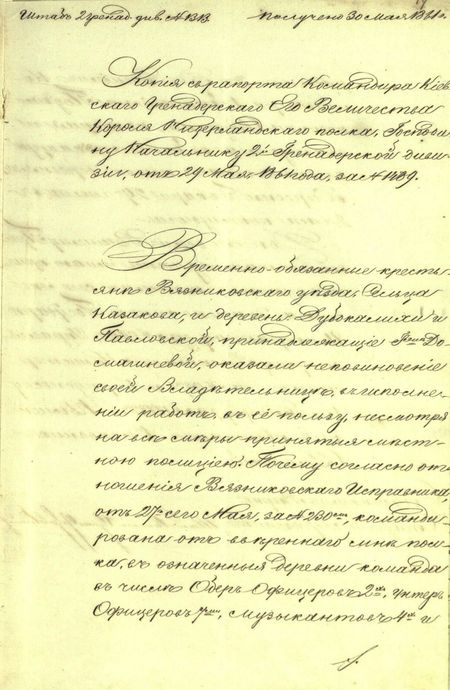 Штабъ 2 гренад. див. № 1313.
Получено 30 мая 1861 г.
Копія съ рапорта Командира Кіев-
скаго Гренадерскаго Его Величества
Короля Нидерландскаго полка, Господи-
ну Начальнику 2й Гренадерской диви-
зіи, отъ 29 Мая 1861 года, за № 1489.
Временно-обязанные кресть-
яне Вязниковскаго уѣзда, Сельца
Казакова, и деревень: и
Павловской, принадлежащіе Гжѣ До-
магиневой, оказали неповиновеніе
своей Владѣтельницѣ, въ исполне-
ніи работъ, въ её пользу, несмотря
на всѣ мѣры принятыя мѣст-
ною полиціею. Почему согласно от-
ношенія Вязниковскаго Исправника,
отъ 27 сего Мая, за № 230мъ, команди-
рована отъ ввѣреннаго мнѣ пол-
ка, въ означенныя деревни команда
въ числѣ Оберъ Офицеровъ 2хъ, унтеръ
Офицеровъ 7ми, музыкантовъ 4хъ и